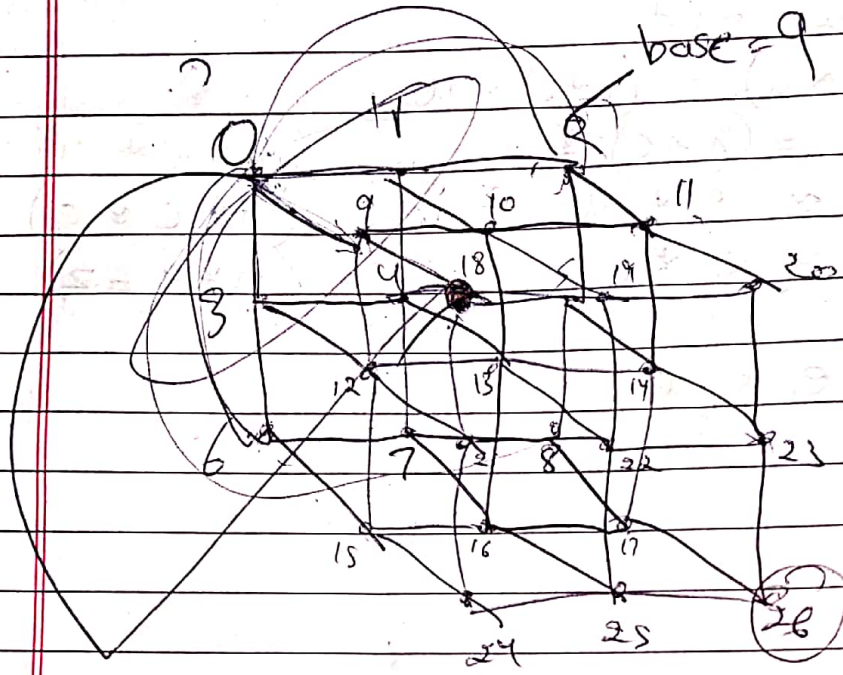 base = 9
?
0 1 2
9 10 11
3 4 18 5 19 20
12 13 14
6 7 2 8 22 23
15 16 17
24 25 26